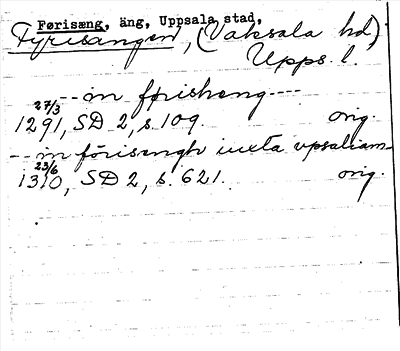 Førisæng, äng, Uppsala stad,
Fyrisängen, (Vaksala hd)
Upps. l.
-- in førisheng ----
27/3
1291, SD 2, s. 109. orig.
-- in førisengh iuxta vpsaliam --
23/6
1310, SD 2, s. 621. orig.